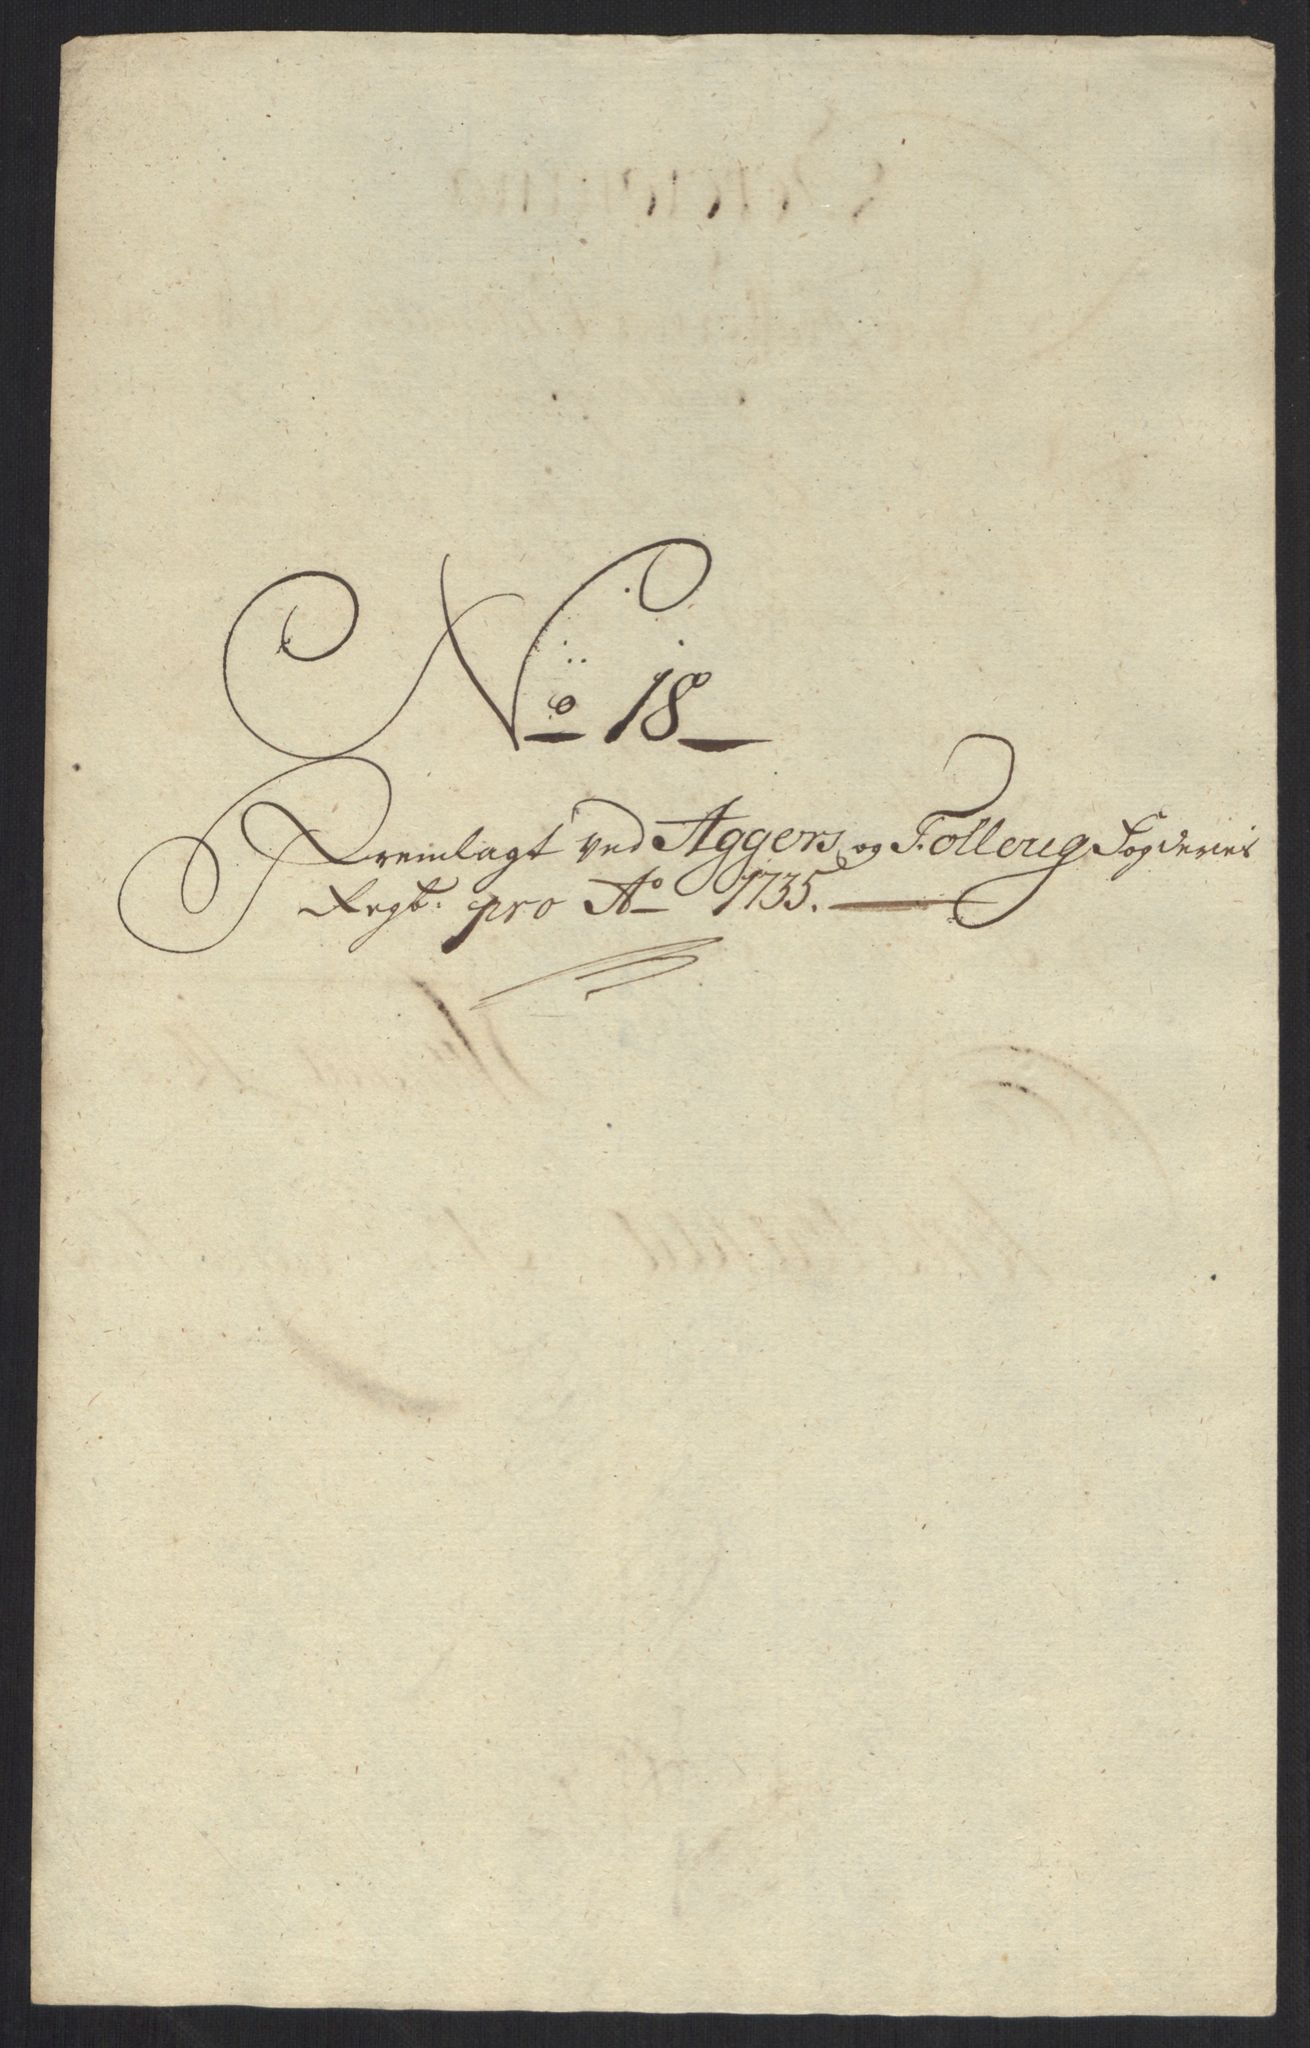 No 18
Fremlagt ved Aggers og Folloug Fogderies
Regb: pro Ao 1735.